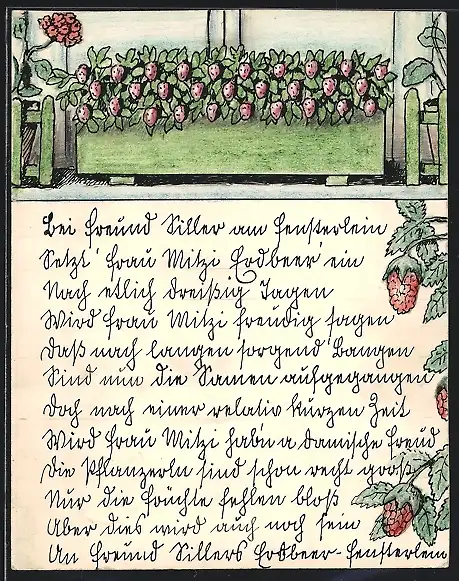 Bei Freund Siller am Fensterlein
Setzt' Frau Mitzi Erdbeer' ein
Nach etlich dreißig Tagen
Wird Frau Mitzi freudig sagen
Daß nach langen sorgend' Bangen
Sind nun die Samen aufgegangen
Doch nach einer relativ kurzen Zeit
Wird Frau Mitzi hab'n a damische Freud
Die Pflanzerln sind schon recht groß
Nur die Früchte fehlen bloß
Aber dies wird auch noch sein
An Freund Sillers Erdbeer-Fensterlein